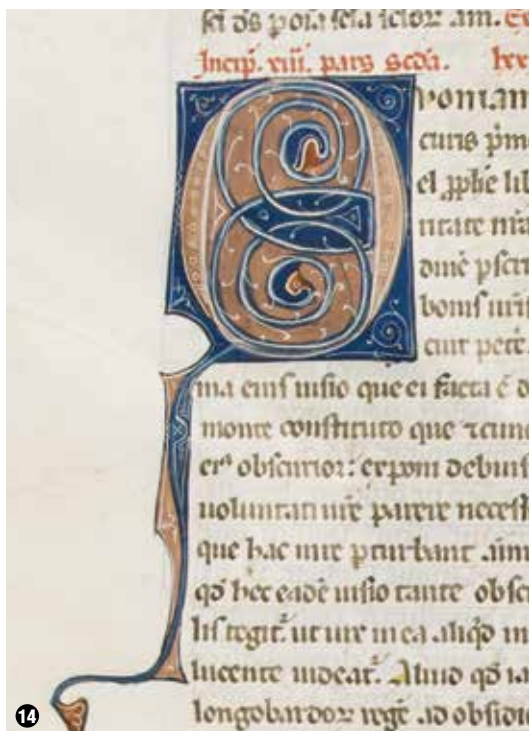 sci ds
Incip. xiii. pars scda. lxx
Quoniam
curis pm
el pphe lib
ritate ura
dine pscru
bonis uris
cuit pete
ma eius uisio que ei facta ē d
monte constituto que 7 cunc
er obscurior: exponi debuis
uoluntati ure parere necesse
que hac in re pturbant anim
qd hec eadē uisio tante obscu
lis tegit. ut uix in ea aliqd in
lucente uideat. Aliud qd ia
longobardoꝝ regē ad obsidio
14